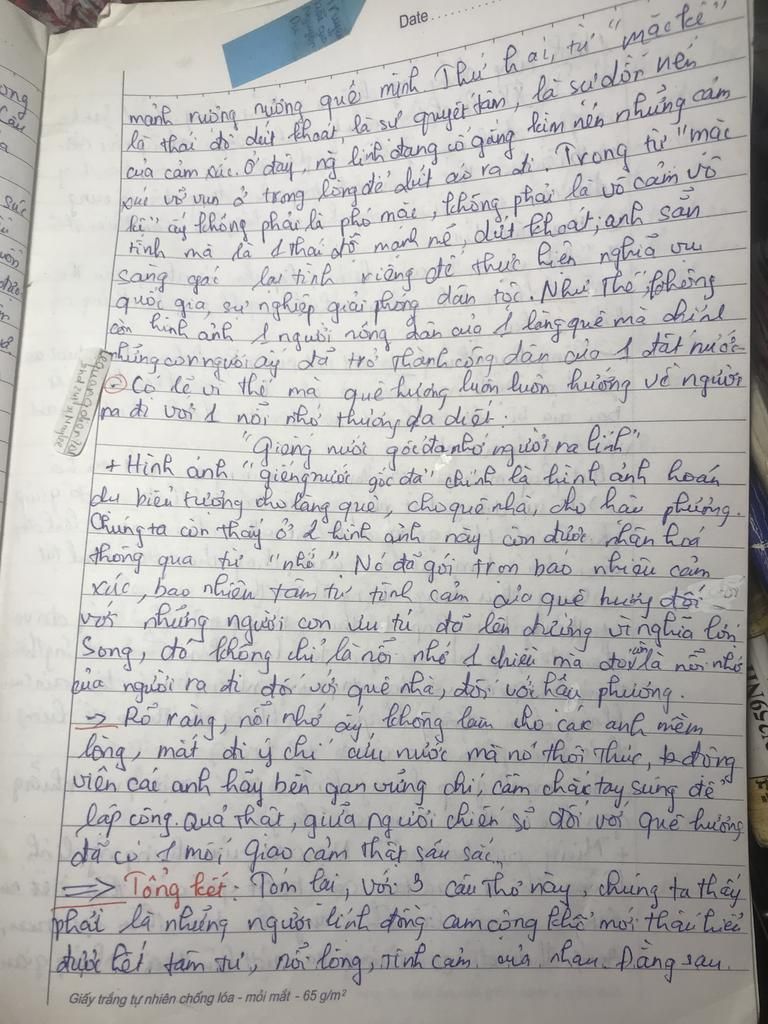 Date
mảnh ruộng nương quê mình Thứ hai, từ "mặc kệ"
là thái độ dứt khoát, là sự quyết tâm, là sự dồn nén
của cảm xúc. Ở đây, ng lính đang cố gắng kìm nén những cảm
xúc vỡ vụn ở trong lòng để dứt áo ra đi. Trong từ "mặc
kệ" ấy không phải là phó mặc, không phải là vô cảm vô
tình mà là 1 thái độ mạnh mẽ, dứt khoát; anh sẵn
sàng gác lại tình riêng để thực hiện nghĩa vụ
quốc gia, sự nghiệp giải phóng dân tộc. Như thế, không
còn hình ảnh 1 người nông dân của 1 làng quê mà chính
những con người ấy đã trở thành công dân của 1 đất nước
Có lẽ vì thế mà quê hương luôn luôn hướng về người
ra đi với 1 nỗi nhớ thương da diết:
"Giếng nước gốc đa nhớ người ra lính"
+ Hình ảnh "giếng nước gốc đa" chính là hình ảnh hoán
dụ biểu tượng cho làng quê, cho quê nhà, cho hậu phương.
Chúng ta còn thấy ở 2 hình ảnh này còn được nhân hoá
thông qua từ "nhớ" Nó đã gói trọn bao nhiêu cảm
xúc, bao nhiêu tâm tư tình cảm của quê hương đối
với những người con ưu tú đã lên đường vì nghĩa lớn
Song, đó không chỉ là nỗi nhớ 1 chiều mà đó còn là nỗi nhớ
của người ra đi đối với quê nhà, đối với hậu phương.
-> Rõ ràng, nỗi nhớ ấy không làm cho các anh mềm
lòng, mất đi ý chí cứu nước mà nó thôi thúc, động
viên các anh hãy bền gan vững chí, cầm chắc tay súng để
lập công. Quả thật, giữa người chiến sĩ đối với quê hương
đã có 1 mối giao cảm thật sâu sắc.
=> Tổng kết: Tóm lại, với 3 câu thơ này, chúng ta thấy
phải là những người lính đồng cam cộng khổ mới thấu hiểu
được hết tâm tư, nỗi lòng, tình cảm của nhau. Đằng sau
Giấy trắng tự nhiên chống lóa - mỏi mắt - 65 g/m²